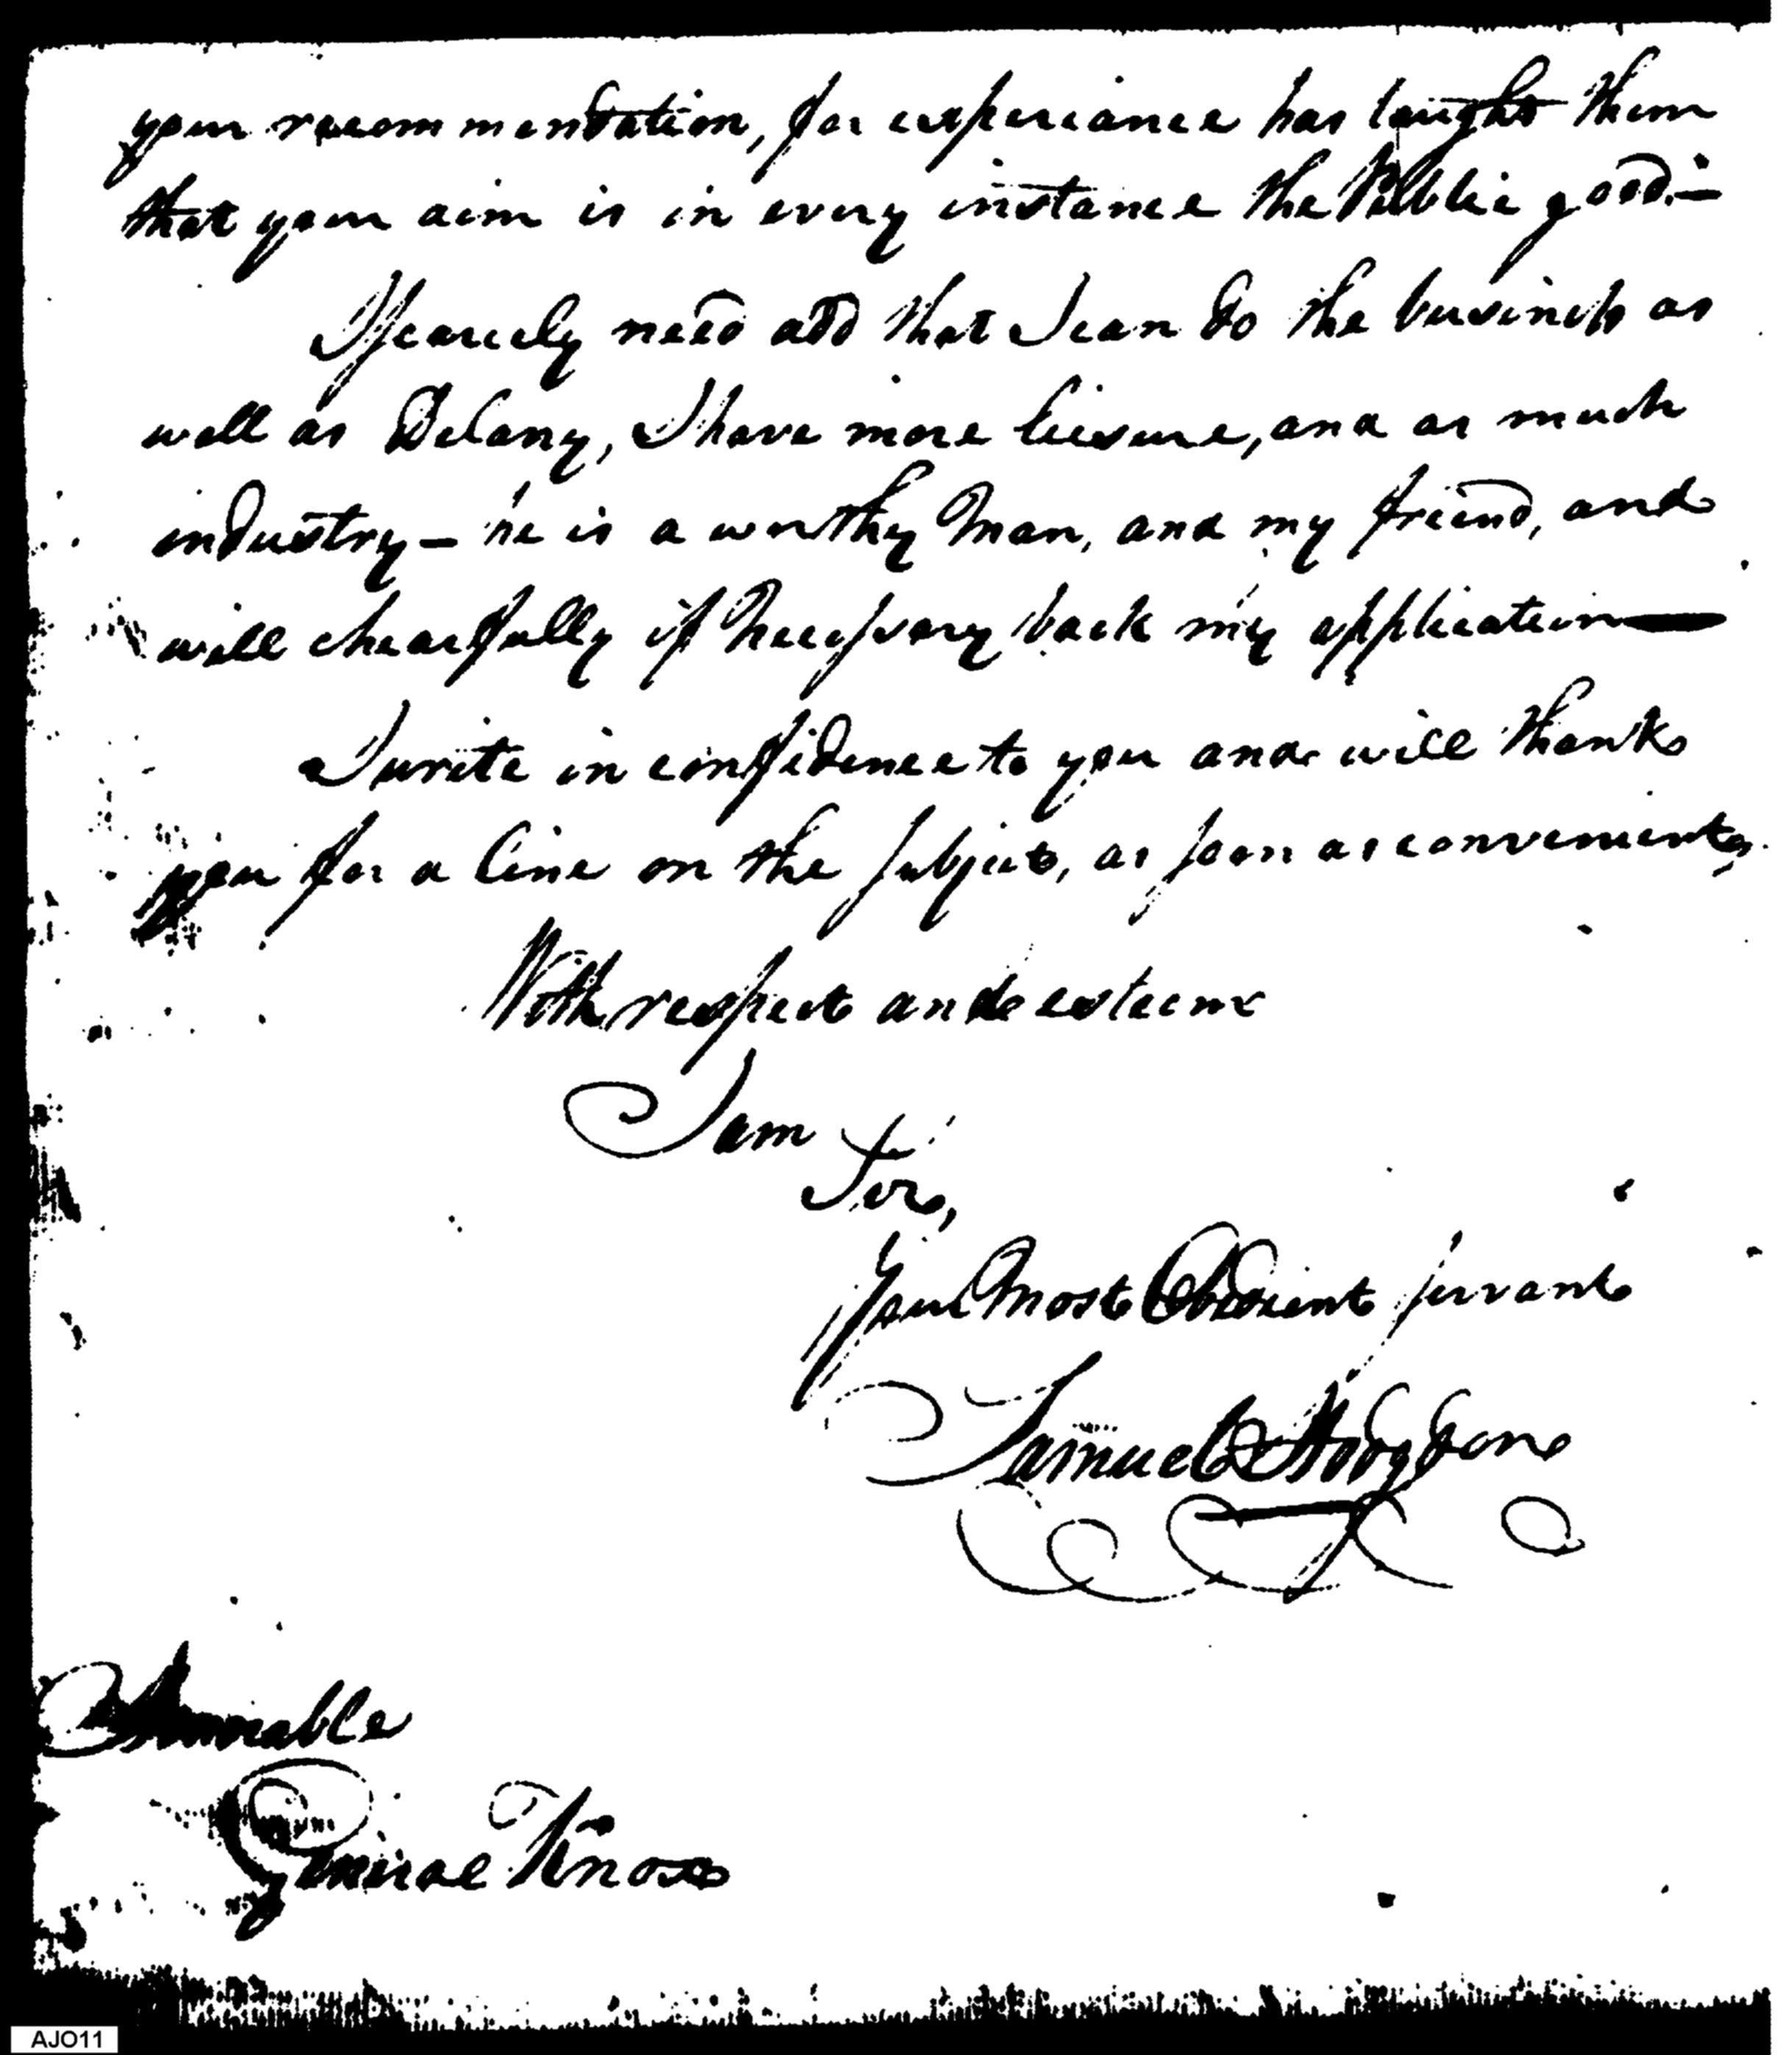 your recommendation, for experiance has taught them
that your aim is in every instance the Public good.—
I scarcely need add that I can do the business as
well as Delany, I have more leisure, and as much
industry — he is a worthy Man, and my friend, and
will chearfully if Necessary back my application —
I write in confidence to you and will thank
you for a line on the subject, as soon as convenient,
With respect and esteem
I am
Sir,
Your Most Obedient servant
Samuel Hodgdon
Honorable
General Knox
AJO11